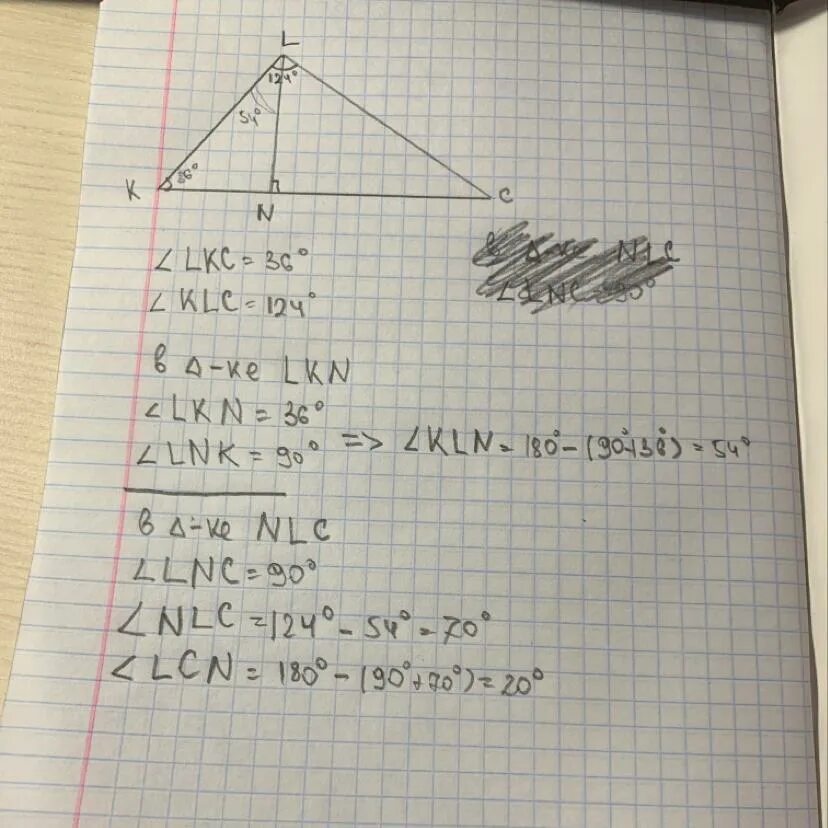 L
124°
54°
36°
K
N
C
∠LKC = 36°
∠KLC = 124°
в Δ-ке LKN
∠LKN = 36°
∠LNK = 90° => ∠KLN = 180° - (90°+36°) = 54°
в Δ-ке NLC
∠LNC = 90°
∠NLC = 124° - 54° = 70°
∠LCN = 180° - (90°+70°) = 20°